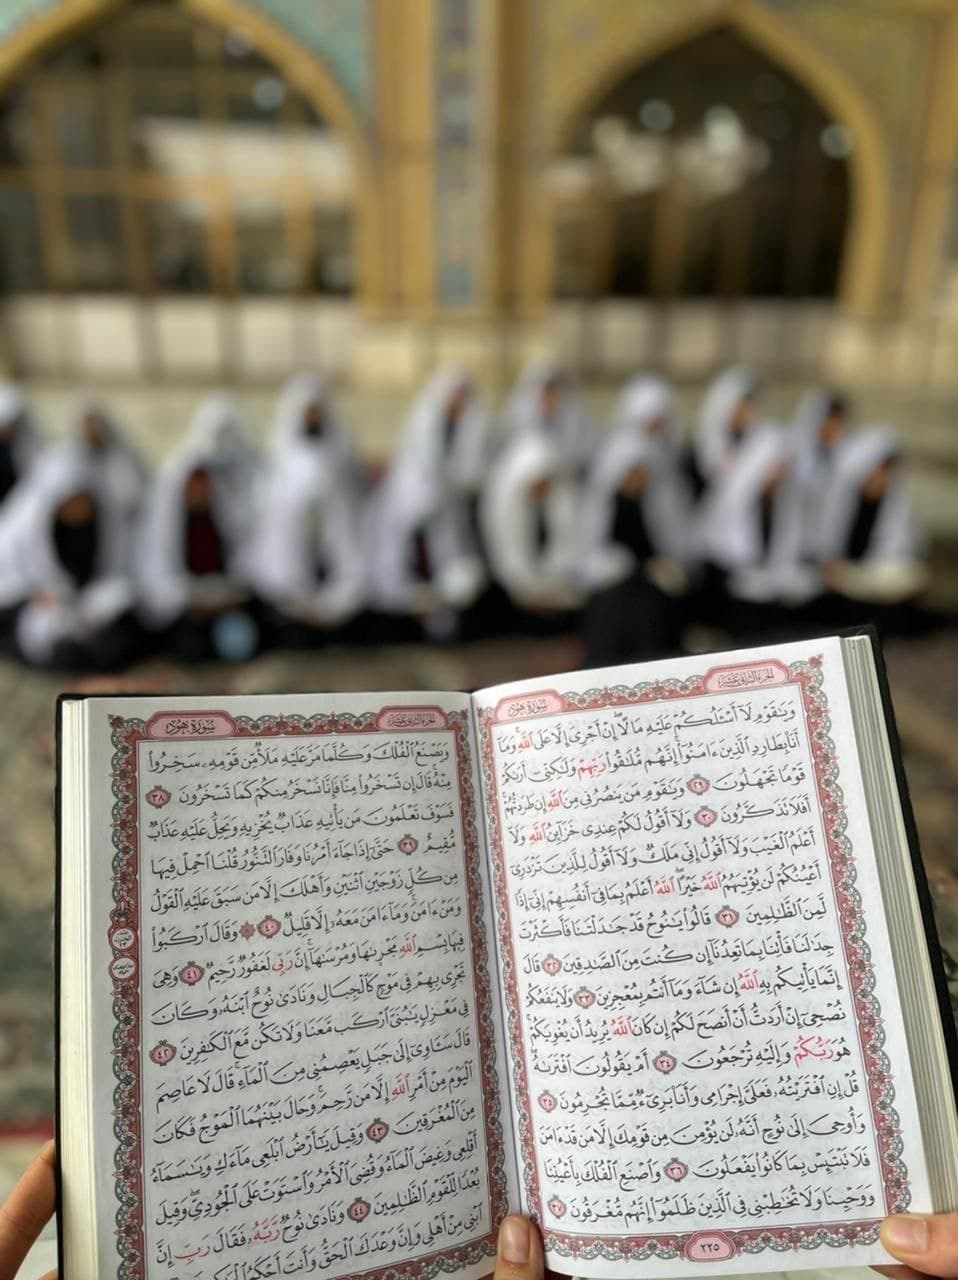 الجزء الثاني عشر
سورة هود
وَيَٰقَوْمِ لَآ أَسْـَٔلُكُمْ عَلَيْهِ مَالًا ۖ إِنْ أَجْرِىَ إِلَّا عَلَى ٱللَّهِ ۚ وَمَآ
أَنَا۠ بِطَارِدِ ٱلَّذِينَ ءَامَنُوٓا۟ ۚ إِنَّهُم مُّلَٰقُوا۟ رَبِّهِمْ وَلَٰكِنِّىٓ أَرَىٰكُمْ
قَوْمًا تَجْهَلُونَ ٢٩ وَيَٰقَوْمِ مَن يَنصُرُنِى مِنَ ٱللَّهِ إِن طَرَدتُّهُمْ ۚ
أَفَلَا تَذَكَّرُونَ ٣٠ وَلَآ أَقُولُ لَكُمْ عِندِى خَزَآئِنُ ٱللَّهِ وَلَآ
أَعْلَمُ ٱلْغَيْبَ وَلَآ أَقُولُ إِنِّى مَلَكٌ وَلَآ أَقُولُ لِلَّذِينَ تَزْدَرِىٓ
أَعْيُنُكُمْ لَن يُؤْتِيَهُمُ ٱللَّهُ خَيْرًا ۖ ٱللَّهُ أَعْلَمُ بِمَا فِىٓ أَنفُسِهِمْ ۖ إِنِّىٓ إِذًا
لَّمِنَ ٱلظَّٰلِمِينَ ٣١ قَالُوا۟ يَٰنُوحُ قَدْ جَٰدَلْتَنَا فَأَكْثَرْتَ
جِدَٰلَنَا فَأْتِنَا بِمَا تَعِدُنَآ إِن كُنتَ مِنَ ٱلصَّٰدِقِينَ ٣٢ قَالَ
إِنَّمَا يَأْتِيكُم بِهِ ٱللَّهُ إِن شَآءَ وَمَآ أَنتُم بِمُعْجِزِينَ ٣٣ وَلَا يَنفَعُكُمْ
نُصْحِىٓ إِنْ أَرَدتُّ أَنْ أَنصَحَ لَكُمْ إِن كَانَ ٱللَّهُ يُرِيدُ أَن يُغْوِيَكُمْ ۚ
هُوَ رَبُّكُمْ وَإِلَيْهِ تُرْجَعُونَ ٣٤ أَمْ يَقُولُونَ ٱفْتَرَىٰهُ ۖ
قُلْ إِنِ ٱفْتَرَيْتُهُۥ فَعَلَىَّ إِجْرَامِى وَأَنَا۠ بَرِىٓءٌ مِّمَّا تُجْرِمُونَ ٣٥
وَأُوحِىَ إِلَىٰ نُوحٍ أَنَّهُۥ لَن يُؤْمِنَ مِن قَوْمِكَ إِلَّا مَن قَدْ ءَامَنَ
فَلَا تَبْتَئِسْ بِمَا كَانُوا۟ يَفْعَلُونَ ٣٦ وَٱصْنَعِ ٱلْفُلْكَ بِأَعْيُنِنَا
وَوَحْيِنَا وَلَا تُخَٰطِبْنِى فِى ٱلَّذِينَ ظَلَمُوٓا۟ ۚ إِنَّهُم مُّغْرَقُونَ ٣٧
٢٢٥
الجزء الثاني عشر
سورة هود
وَيَصْنَعُ ٱلْفُلْكَ وَكُلَّمَا مَرَّ عَلَيْهِ مَلَأٌ مِّن قَوْمِهِۦ سَخِرُوا۟
مِنْهُ ۚ قَالَ إِن تَسْخَرُوا۟ مِنَّا فَإِنَّا نَسْخَرُ مِنكُمْ كَمَا تَسْخَرُونَ ٣٨
فَسَوْفَ تَعْلَمُونَ مَن يَأْتِيهِ عَذَابٌ يُخْزِيهِ وَيَحِلُّ عَلَيْهِ عَذَابٌ
مُّقِيمٌ ٣٩ حَتَّىٰٓ إِذَا جَآءَ أَمْرُنَا وَفَارَ ٱلتَّنُّورُ قُلْنَا ٱحْمِلْ فِيهَا
مِن كُلٍّ زَوْجَيْنِ ٱثْنَيْنِ وَأَهْلَكَ إِلَّا مَن سَبَقَ عَلَيْهِ ٱلْقَوْلُ
وَمَنْ ءَامَنَ ۚ وَمَآ ءَامَنَ مَعَهُۥٓ إِلَّا قَلِيلٌ ٤٠ ۞ وَقَالَ ٱرْكَبُوا۟
فِيهَا بِسْمِ ٱللَّهِ مَجْر۪ىٰهَا وَمُرْسَىٰهَآ ۚ إِنَّ رَبِّى لَغَفُورٌ رَّحِيمٌ ٤١ وَهِىَ
تَجْرِى بِهِمْ فِى مَوْجٍ كَٱلْجِبَالِ وَنَادَىٰ نُوحٌ ٱبْنَهُۥ وَكَانَ
فِى مَعْزِلٍ يَٰبُنَىَّ ٱرْكَب مَّعَنَا وَلَا تَكُن مَّعَ ٱلْكَٰفِرِينَ ٤٢
قَالَ سَـَٔاوِىٓ إِلَىٰ جَبَلٍ يَعْصِمُنِى مِنَ ٱلْمَآءِ ۚ قَالَ لَا عَاصِمَ
ٱلْيَوْمَ مِنْ أَمْرِ ٱللَّهِ إِلَّا مَن رَّحِمَ ۚ وَحَالَ بَيْنَهُمَا ٱلْمَوْجُ فَكَانَ
مِنَ ٱلْمُغْرَقِينَ ٤٣ وَقِيلَ يَٰٓأَرْضُ ٱبْلَعِى مَآءَكِ وَيَٰسَمَآءُ
أَقْلِعِى وَغِيضَ ٱلْمَآءُ وَقُضِىَ ٱلْأَمْرُ وَٱسْتَوَتْ عَلَى ٱلْجُودِىِّ ۖ وَقِيلَ
بُعْدًا لِّلْقَوْمِ ٱلظَّٰلِمِينَ ٤٤ وَنَادَىٰ نُوحٌ رَّبَّهُۥ فَقَالَ رَبِّ إِنَّ
ٱبْنِى مِنْ أَهْلِى وَإِنَّ وَعْدَكَ ٱلْحَقُّ وَأَنتَ أَحْكَمُ ٱلْحَٰكِمِينَ